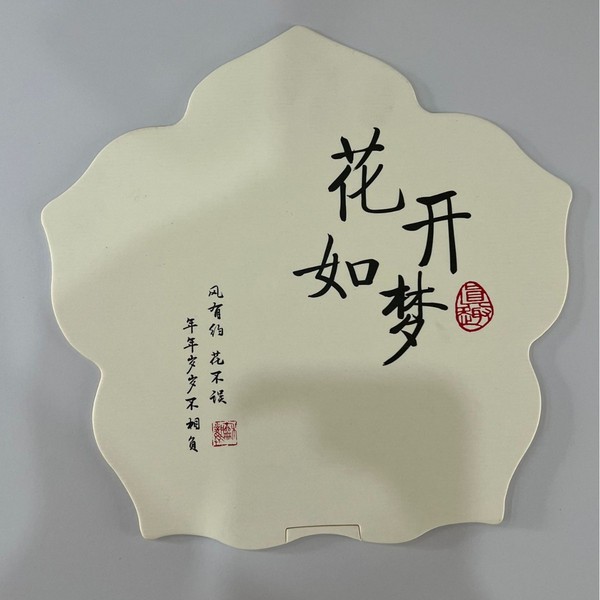 花开
如梦
真趣
风有约 花不误
年年岁岁不相负